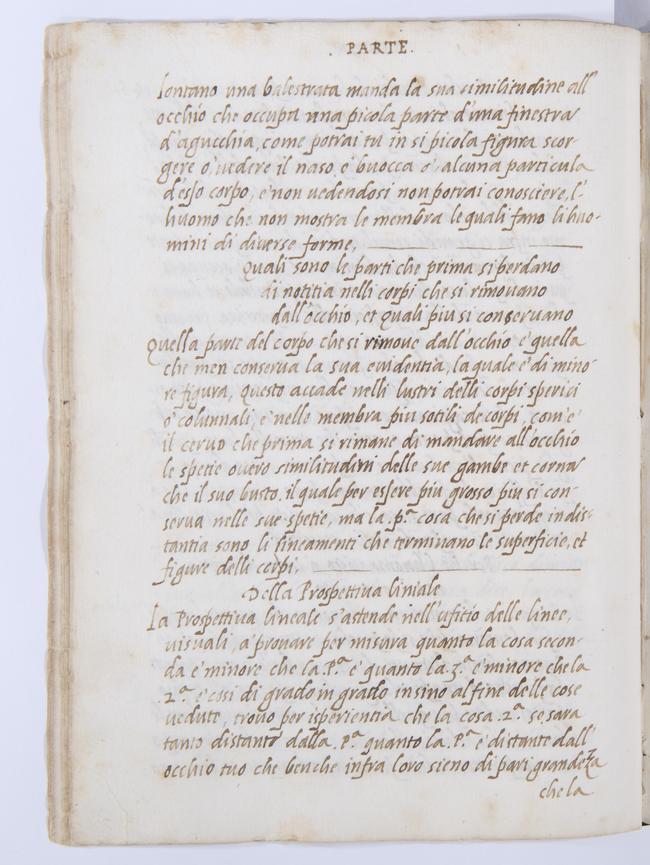 PARTE.
lontano una balestrata manda la sua similitudine all'
occhio che occupa una picola parte d'una finestra
d'agucchia, come potrai tu in si picola figura scor-
gere o', uedere il naso, o' buocca o', alcuna particula
d'esso corpo, e' non uedendosi non potrai conosciere, l'
huomo che non mostra le membra le quali fano li huo-
mini di diuerse forme.
Quali sono le parti che prima si perdano
di notitia nelli corpi che si rimouano
dall'occhio, et quali piu si conseruano
Quella parte del corpo che si rimoue dall'occhio e' quella
che men conserua la sua euidentia, la quale e' di mino-
re figura, questo accade nelli lustri delli corpi sperici
o' colunnali, e' nelle membra piu sotili de corpi, com'e'
il ceruo che prima si rimane di mandare all'occhio
le spetie ouero similitudini delle sue gambe et corna
che il suo busto. il quale per essere piu grosso piu si con-
serua nelle sue spetie, ma la .p.ª cosa che si perde in dis-
tantia sono li lineamenti che terminano le superficie, et
figure delli corpi.
Della Prospettiua liniale
La Prospettiua lineale s'astende nell'ufitio delle linee,
uisuali, a' prouare per misura quanto la cosa secon-
da e' minore che la .P.ª e' quanto la .3.ª e' minore che la
2.ª e' cosi di grado in grado insino al fine delle cose
uedute, trouo per isperientia che la cosa .2.ª se, sara
tanto distante dalla .P.ª quanto la .P.ª e' distante dall'
occhio tuo che benche infra loro sieno di pari grandezza
che la